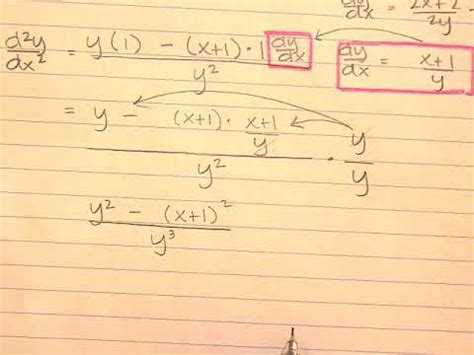 dy/dx = 2x+2/2y
d²y/dx² = y(1) - (x+1)·1 dy/dx / y²
dy/dx = x+1/y
= y - (x+1)· x+1/y / y² · y/y
y² - (x+1)² / y³